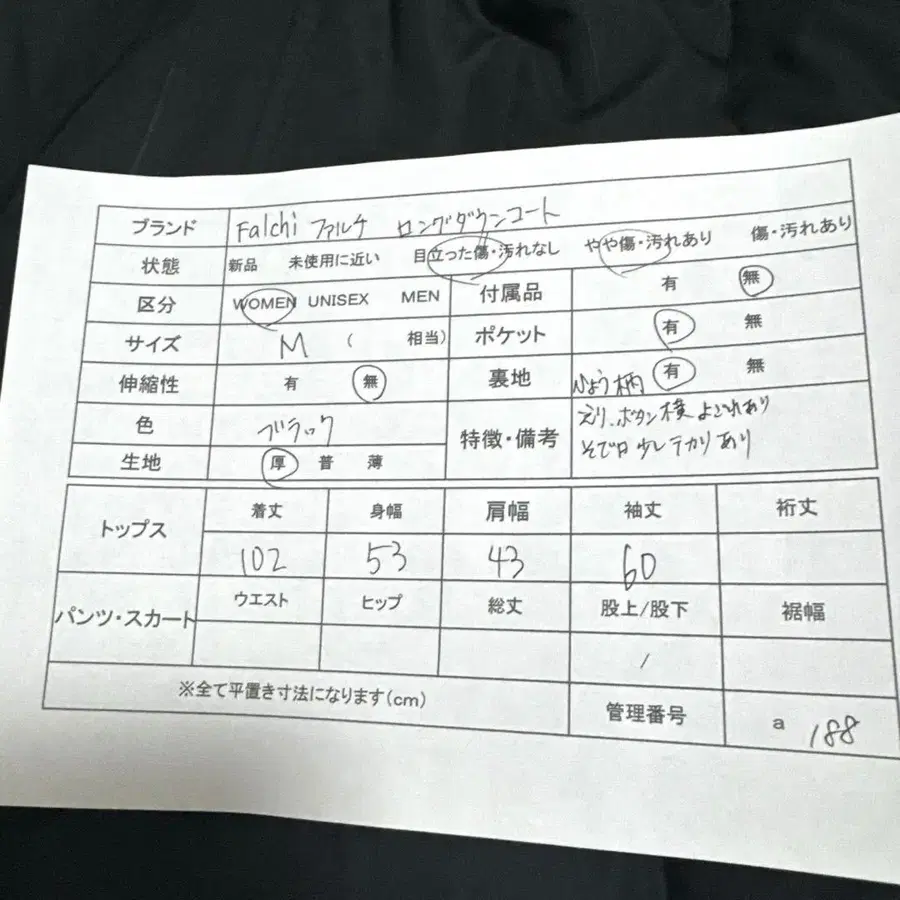 ブランド Falchi ファルチ ロングダウンコート
状態 新品 未使用に近い 目立った傷・汚れなし やや傷・汚れあり 傷・汚れあり
区分 WOMEN UNISEX MEN 付属品 有 無
サイズ M ( 相当) ポケット 有 無
伸縮性 有 無 裏地 ひょう柄 有 無
色 ブラック 特徴・備考 えり、ボタン横 よごれあり
そで口 少し テカリあり
生地 厚 普 薄
トップス 着丈 身幅 肩幅 袖丈 裄丈
102 53 43 60
パンツ・スカート ウエスト ヒップ 総丈 股上/股下 裾幅
/
※全て平置き寸法になります(cm) 管理番号 a 188